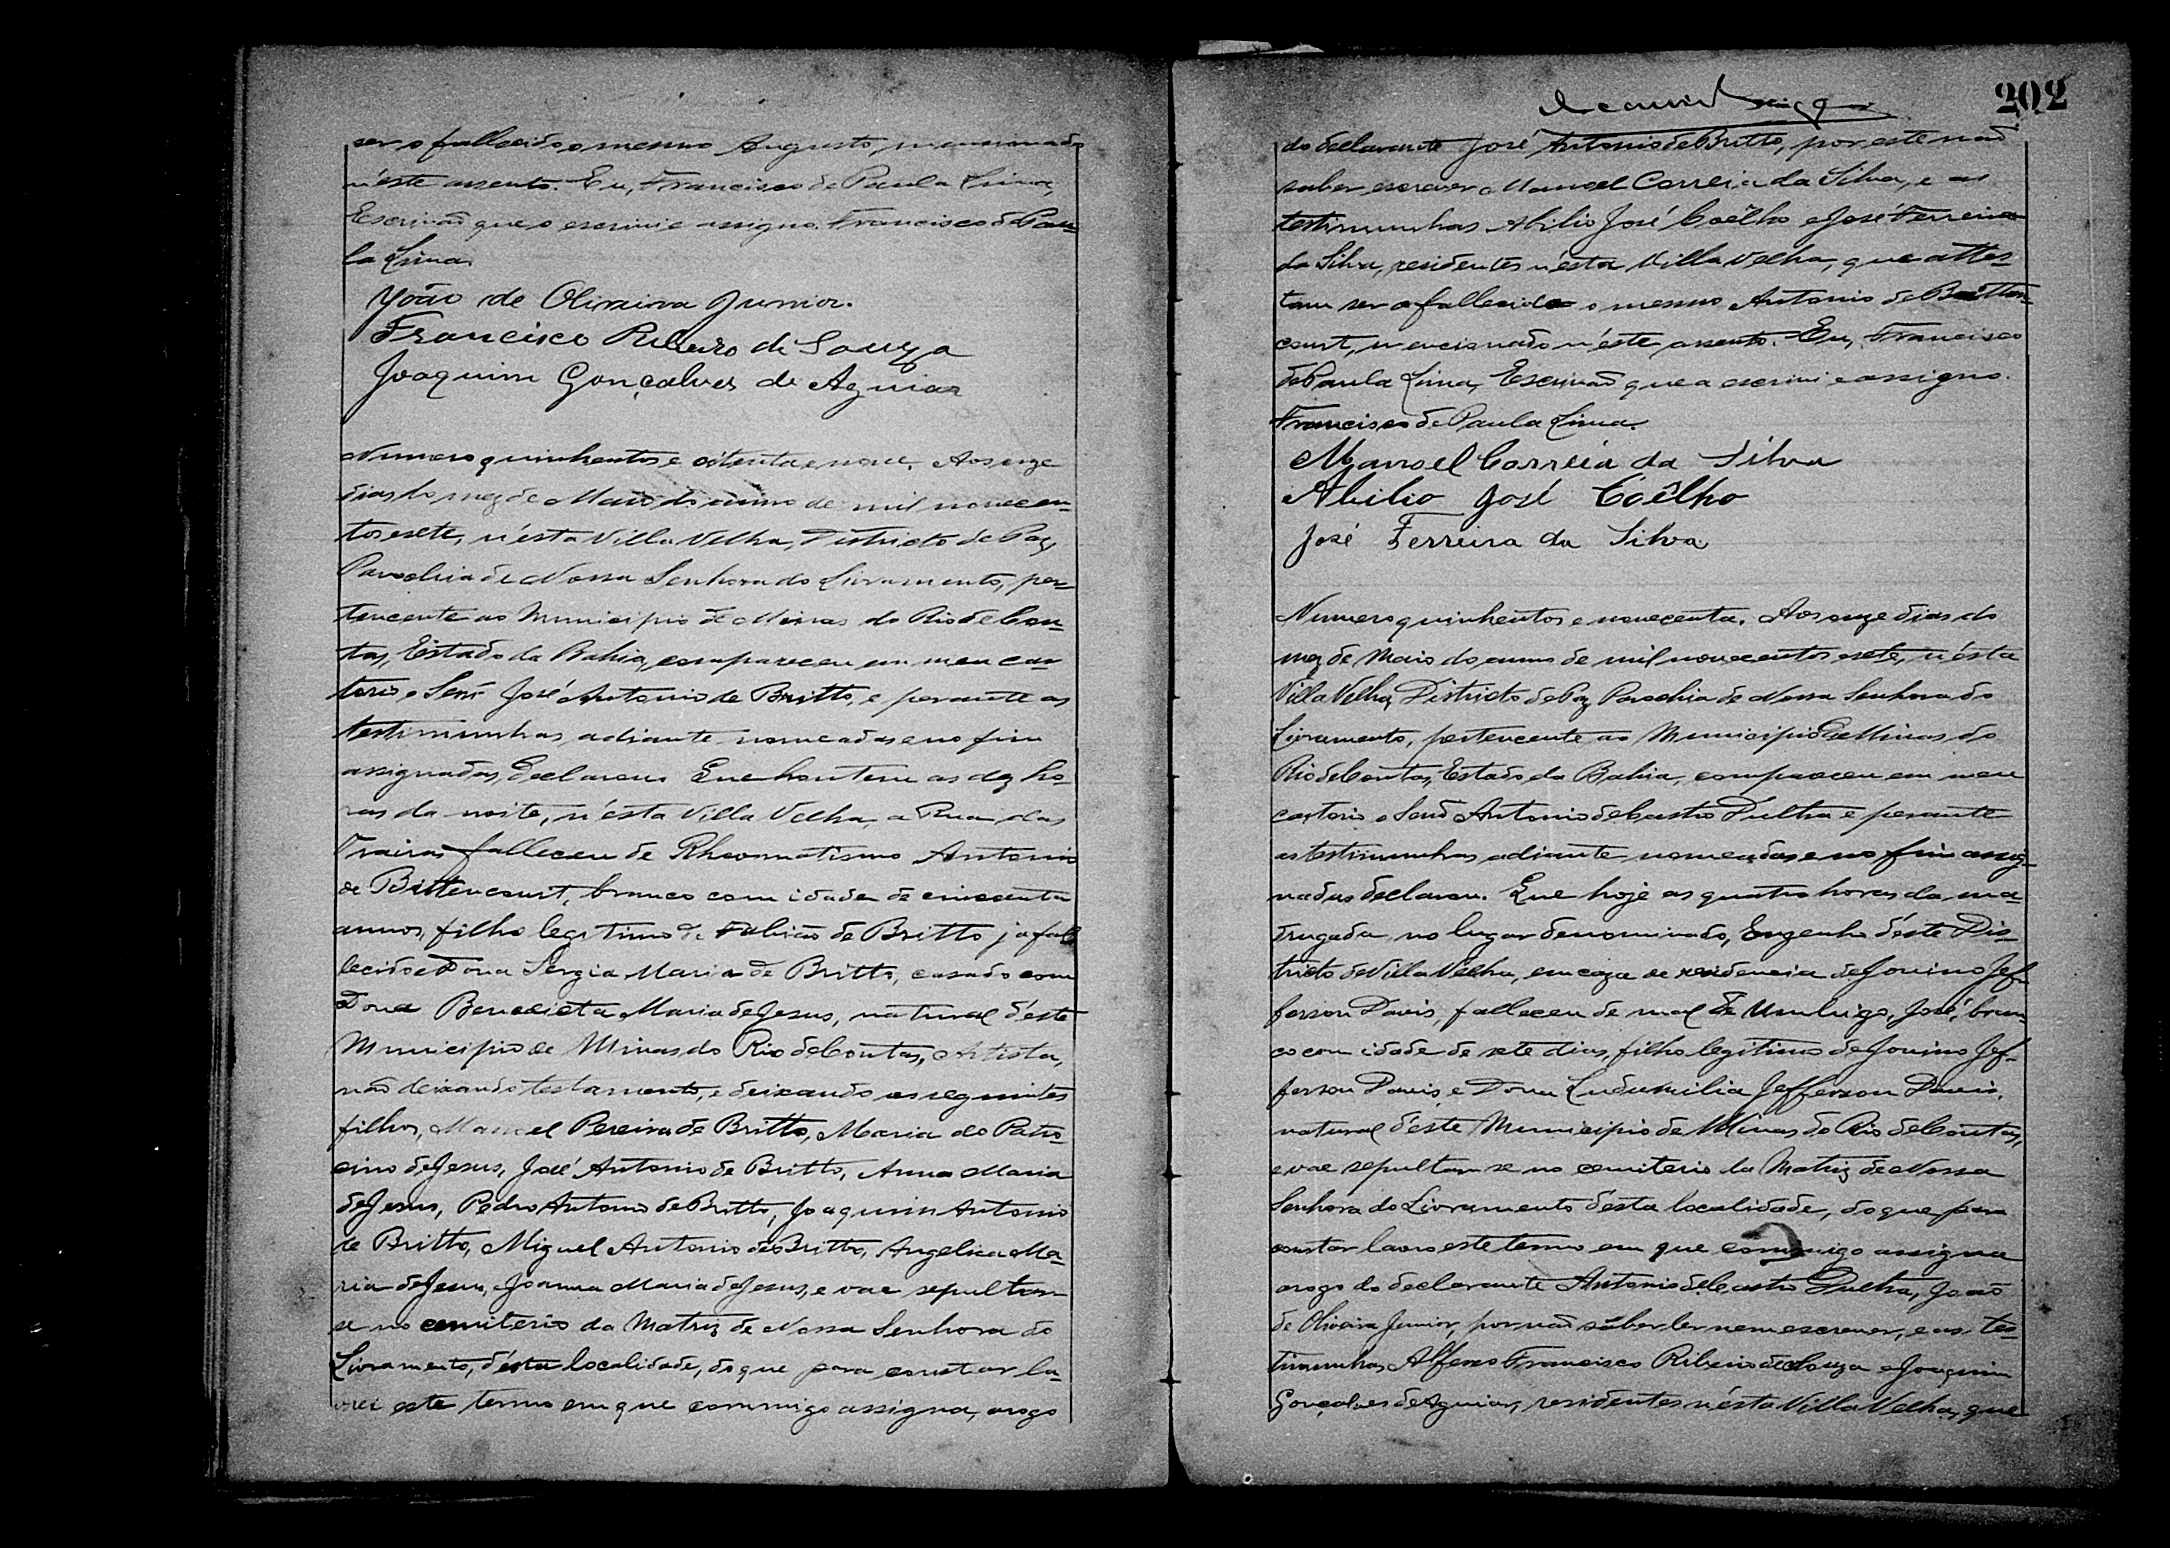 ser o fallecido o mesmo Augusto, mencionado
n'éste assento. Eu, Francisco de Paula Lima,
Escrivão que o escrivi e assigno. Francisco de Pau-
la Lima.
João de Oliveira Junior.
Francisco Ribeiro de Souza
Joaquim Gonçalves de Aguiar
Numero quinhentos e oitenta e nove. Aos onze
dias do mez de Maio do anno de mil novecen-
tos e sete, n'ésta Villa Velha, Districto de Paz,
Parochia de Nossa Senhora do Livramento, per-
tencente ao Municipio de Minas do Rio de Con-
tas, Estado da Bahia, compareceu em meu car
torio o Senr José Antonio de Britto, e perante as
testimunhas adiante nomeadas e no fim
assignadas, declarou Que hontem as dez ho-
ras da noite, n'ésta Villa Velha, a Rua das
Trairas falleceu de Rheomatismo Antonio
de Bittencourt, branco com idade de cincoenta
annos, filho legitimo de Fabião de Britto já fal
lecido e Dona Sergia Maria de Britto, casado com
Dona Benedicta Maria de Jesus, natural d'éste
Municipio de Minas do Rio de Contas, Artista,
não deixando testamento, e deixando os seguintes
filhos, Manoel Pereira de Britto, Maria do Patro-
cino de Jesus, José Antonio de Britto, Anna Maria
de Jesus, Pedro Antonio de Britto, Joaquim Antonio
de Britto, Miguel Antonio de Britto, Angelica Ma-
ria de Jesus, Joanna Maria de Jesus, e vae sepultar
se no cemiterio da Matriz de Nossa Senhora do
Livramento, d'ésta localidade, do que para constar la-
vrei este termo em que commigo assigna, arogo
202
do declarante José Antonio de Britto, por este não
saber escrever Manoel Correia da Silva, e as
testimunhas Abilio José Coêlho e José Ferreira
da Silva, residentes n'ésta Villa Velha, que attes-
tam ser o fallecido o mesmo Antonio de Bitten-
court, mencionado n'éste assento. Eu, Francisco
de Paula Lima, Escrivão que a escrivi e assigno.
Francisco de Paula Lima.
Manoel Corrêia da Silva
Abilio José Coêlho
José Ferreira da Silva
Numero quinhentos e novecenta. Aos onze dias do
mez de Maio do anno de mil novecentos e sete, n'ésta
Villa Velha, Districto de Paz, Parochia de Nossa Senhora do
Livramento, pertencente ao Municipio de Minas do
Rio de Contas, Estado da Bahia, compareceu em meu
cartorio o Senr Antonio de Castro Dultra e perante
as testimunhas adiante nomeadas e no fim assig-
nadas declarou. Que hoje as quatro horas da ma-
drugada, no lugar denominado, Engenho d'éste Dis-
tricto de Villa Velha, em caza de residencia de Jovino Jef-
ferson Davis, falleceu de mal de Umbigo, José, bran-
co com idade de sete dias, filho legitimo de Jovino Jef-
ferson Davis, e Dona Ludumilia Jefferson Davis,
natural d'éste Municipio de Minas do Rio de Contas,
e vae sepultar se no cemiterio da Matriz de Nossa
Senhora do Livramento d'ésta localidade, do que para
constar lavro este termo em que commigo assigna
arogo do declarante Antonio de Castro Dultra, João
de Oliveira Junior, por não saber ler nem escrever, e as tes-
timunhas Alferes Francisco Ribeiro de Souza e Joaquim
Gonçalves de Aguiar, residentes n'ésta Villa Velha, que